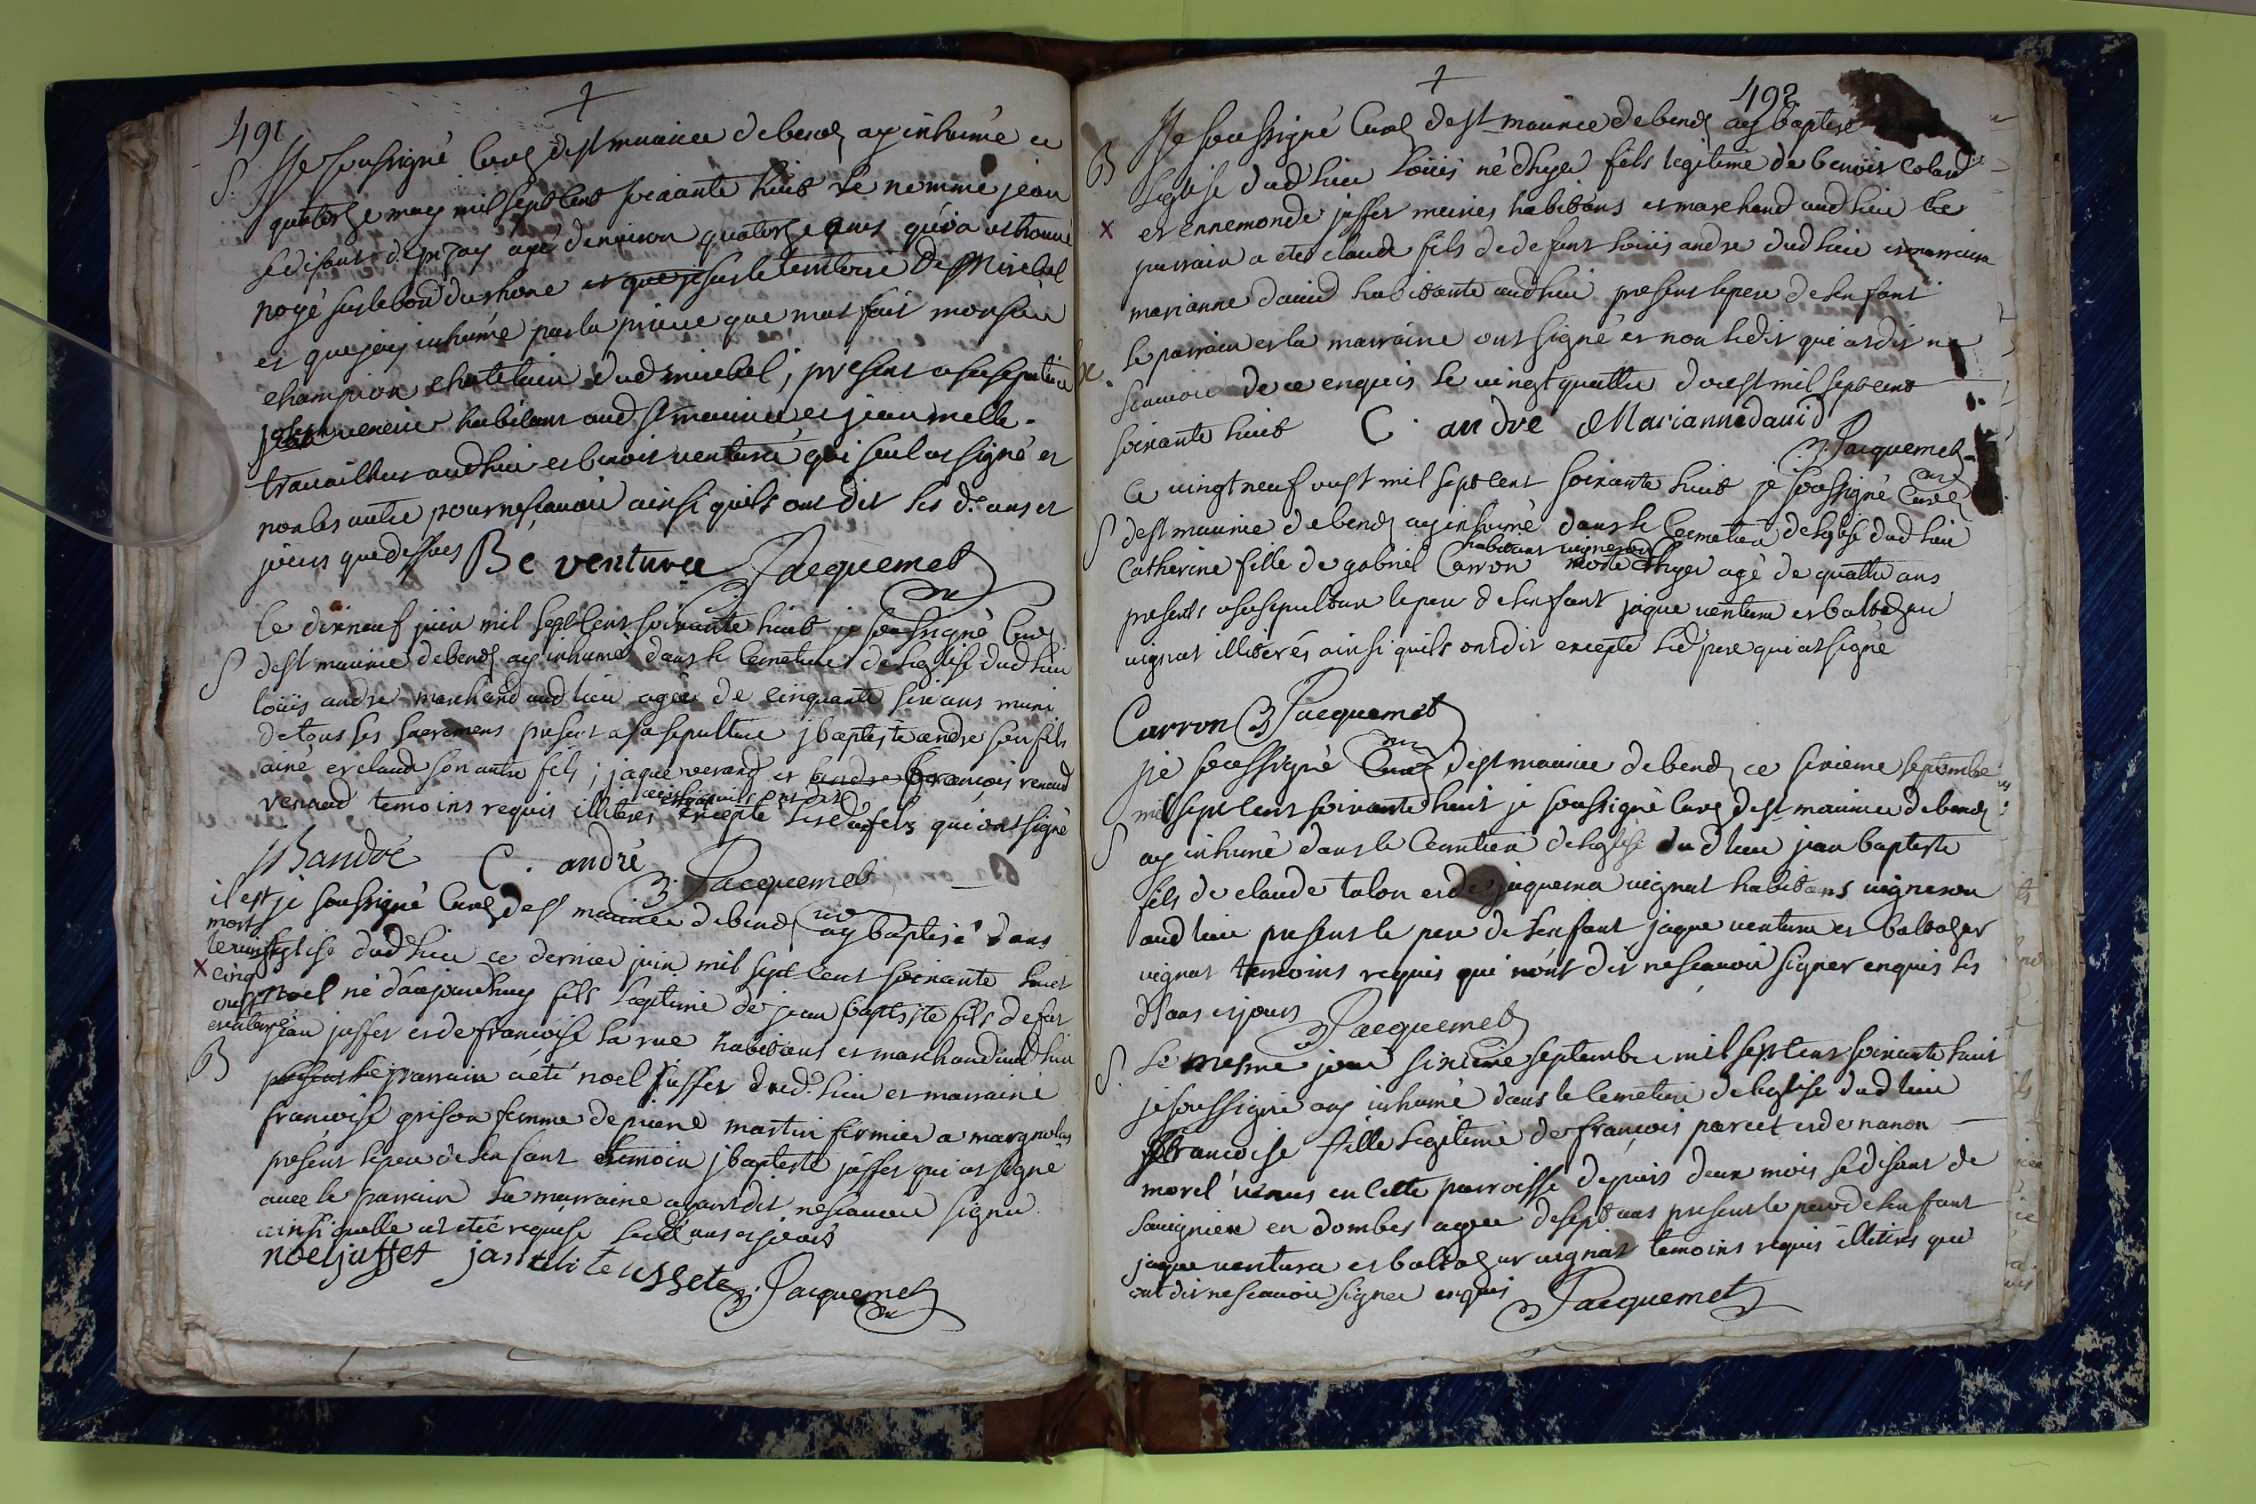 491
S. Je soussigné Curé de st maurice de beinost ay inhumé ce
quatorze may mil sept cent soixante huit le nommé jean
se disant de agé denviron quatorze ans qui a été trouvé
noyé sur le bord du rhone et que je sur le territoire De Miribel
et que jay inhumé par la priere que mat fait monsieur
champion chatelain dud miribel, present a sa sepulture
habitant aud st maurice et jean melle
travailleur aud lieu et benoit ventura qui seul at signé et
non les autre pour ne scavoir ainsi quils ont dit les d. ans et
jours que dessus Bé venture Jacquemet
Ce dixneuf juin mil sept cent soixante huit je soussigné Curé
S de st maurice de beinost ay inhumé dans le Cemetiere de leglise dud lieu
loüis andre marchand aud lieu agée de cinquante six ans muni
de tous ses sacremens present a sa sepulture j baptiste andre son fils
ainé et claude son autre fils; jaque verand et françois renaud
renaud temoins requis illiteres excepté lesd fils qui ont signé
ainsi quils ont dit
JB andré C. andré B. Jacquemet
je soussigné Curé de st maurice de beinost ay baptisé dans
leglise dud lieu ce dernier juin mil sept cent soixante huit
noel né daujourdhuy fils legitime de jean baptiste fils de feu
jean juffet et de francoise la rue habitans et marchand aud lieu
B present le parrain a été noel juffet dud. lieu et marraine
francoise grison femme de pierre martin fermier a margnolas
present le pere de lenfant temoin j baptiste juffet qui at signé
avec le parrain la marraine ayant dit ne scavoir signer
ainsi quelle at été requise lesd ans et jours
noel juffet B. Jacquemet
il est
mort
le vingt
X cinq
oust
enterré
492
B Je soussigné Curé de st maurice de beinost ay baptisé
leglise dud lieu loüis né dhyer fils legitime de benoit coland
X et ennemonde juffet mariés habitans et marchand aud lieu le
parrain a eté claude fils de defunt loüis andre dud lieu et marraine
marianne david habitante aud lieu present le pere de lenfant
le parrain et la marraine ont signé et non ledit qui at dit ne
scavoir de ce enquis le vingt quattre doust mil sept cent
soixante huit C. andre Marianne david
B. Jacquemet
ce vingt neuf oust mil sept cent soixante huit je soussigné Curé
S de st maurice de beinost ay inhumé dans le Cemetiere de leglise dud lieu
Catherine fille de gabriel Carron habitant vigneron morte dhyer agé de quattre ans
presents a sa sepulture le pere de lenfant jaque ventura et baltazar
vignat illiterés ainsi quils ont dit excepté led pere qui at signé
Carron B Jacquemet
Je soussigné Curé de st maurice de beinost ce sixieme septembre
mil sept cent soixante huit je soussigné Curé de st maurice de beinost
S ay inhumé dans le Cemetiere de leglise dud lieu jean baptiste
fils de claude talon et de jaquema vignat habitans vigneron
aud lieu present le pere de lenfant jaque ventura et baltazar
vignat temoins requis qui n'ont dit ne scavoir signer enquis les
d ans et jours B Jacquemet
S. Le mesme jour sixieme septembre mil sept cent soixante huit
je soussigné ay inhumé dans le Cemetiere de leglise dud lieu
francoise fille legitime de françois parcet et de nanon
morel venus en cette parroisse depuis deux mois se disant de
savignieu en dombes agée de sept ans present le pere de lenfant
jaque ventura et baltazar vignat temoins requis illiteres qui
ont dit ne scavoir signer enquis B Jacquemet